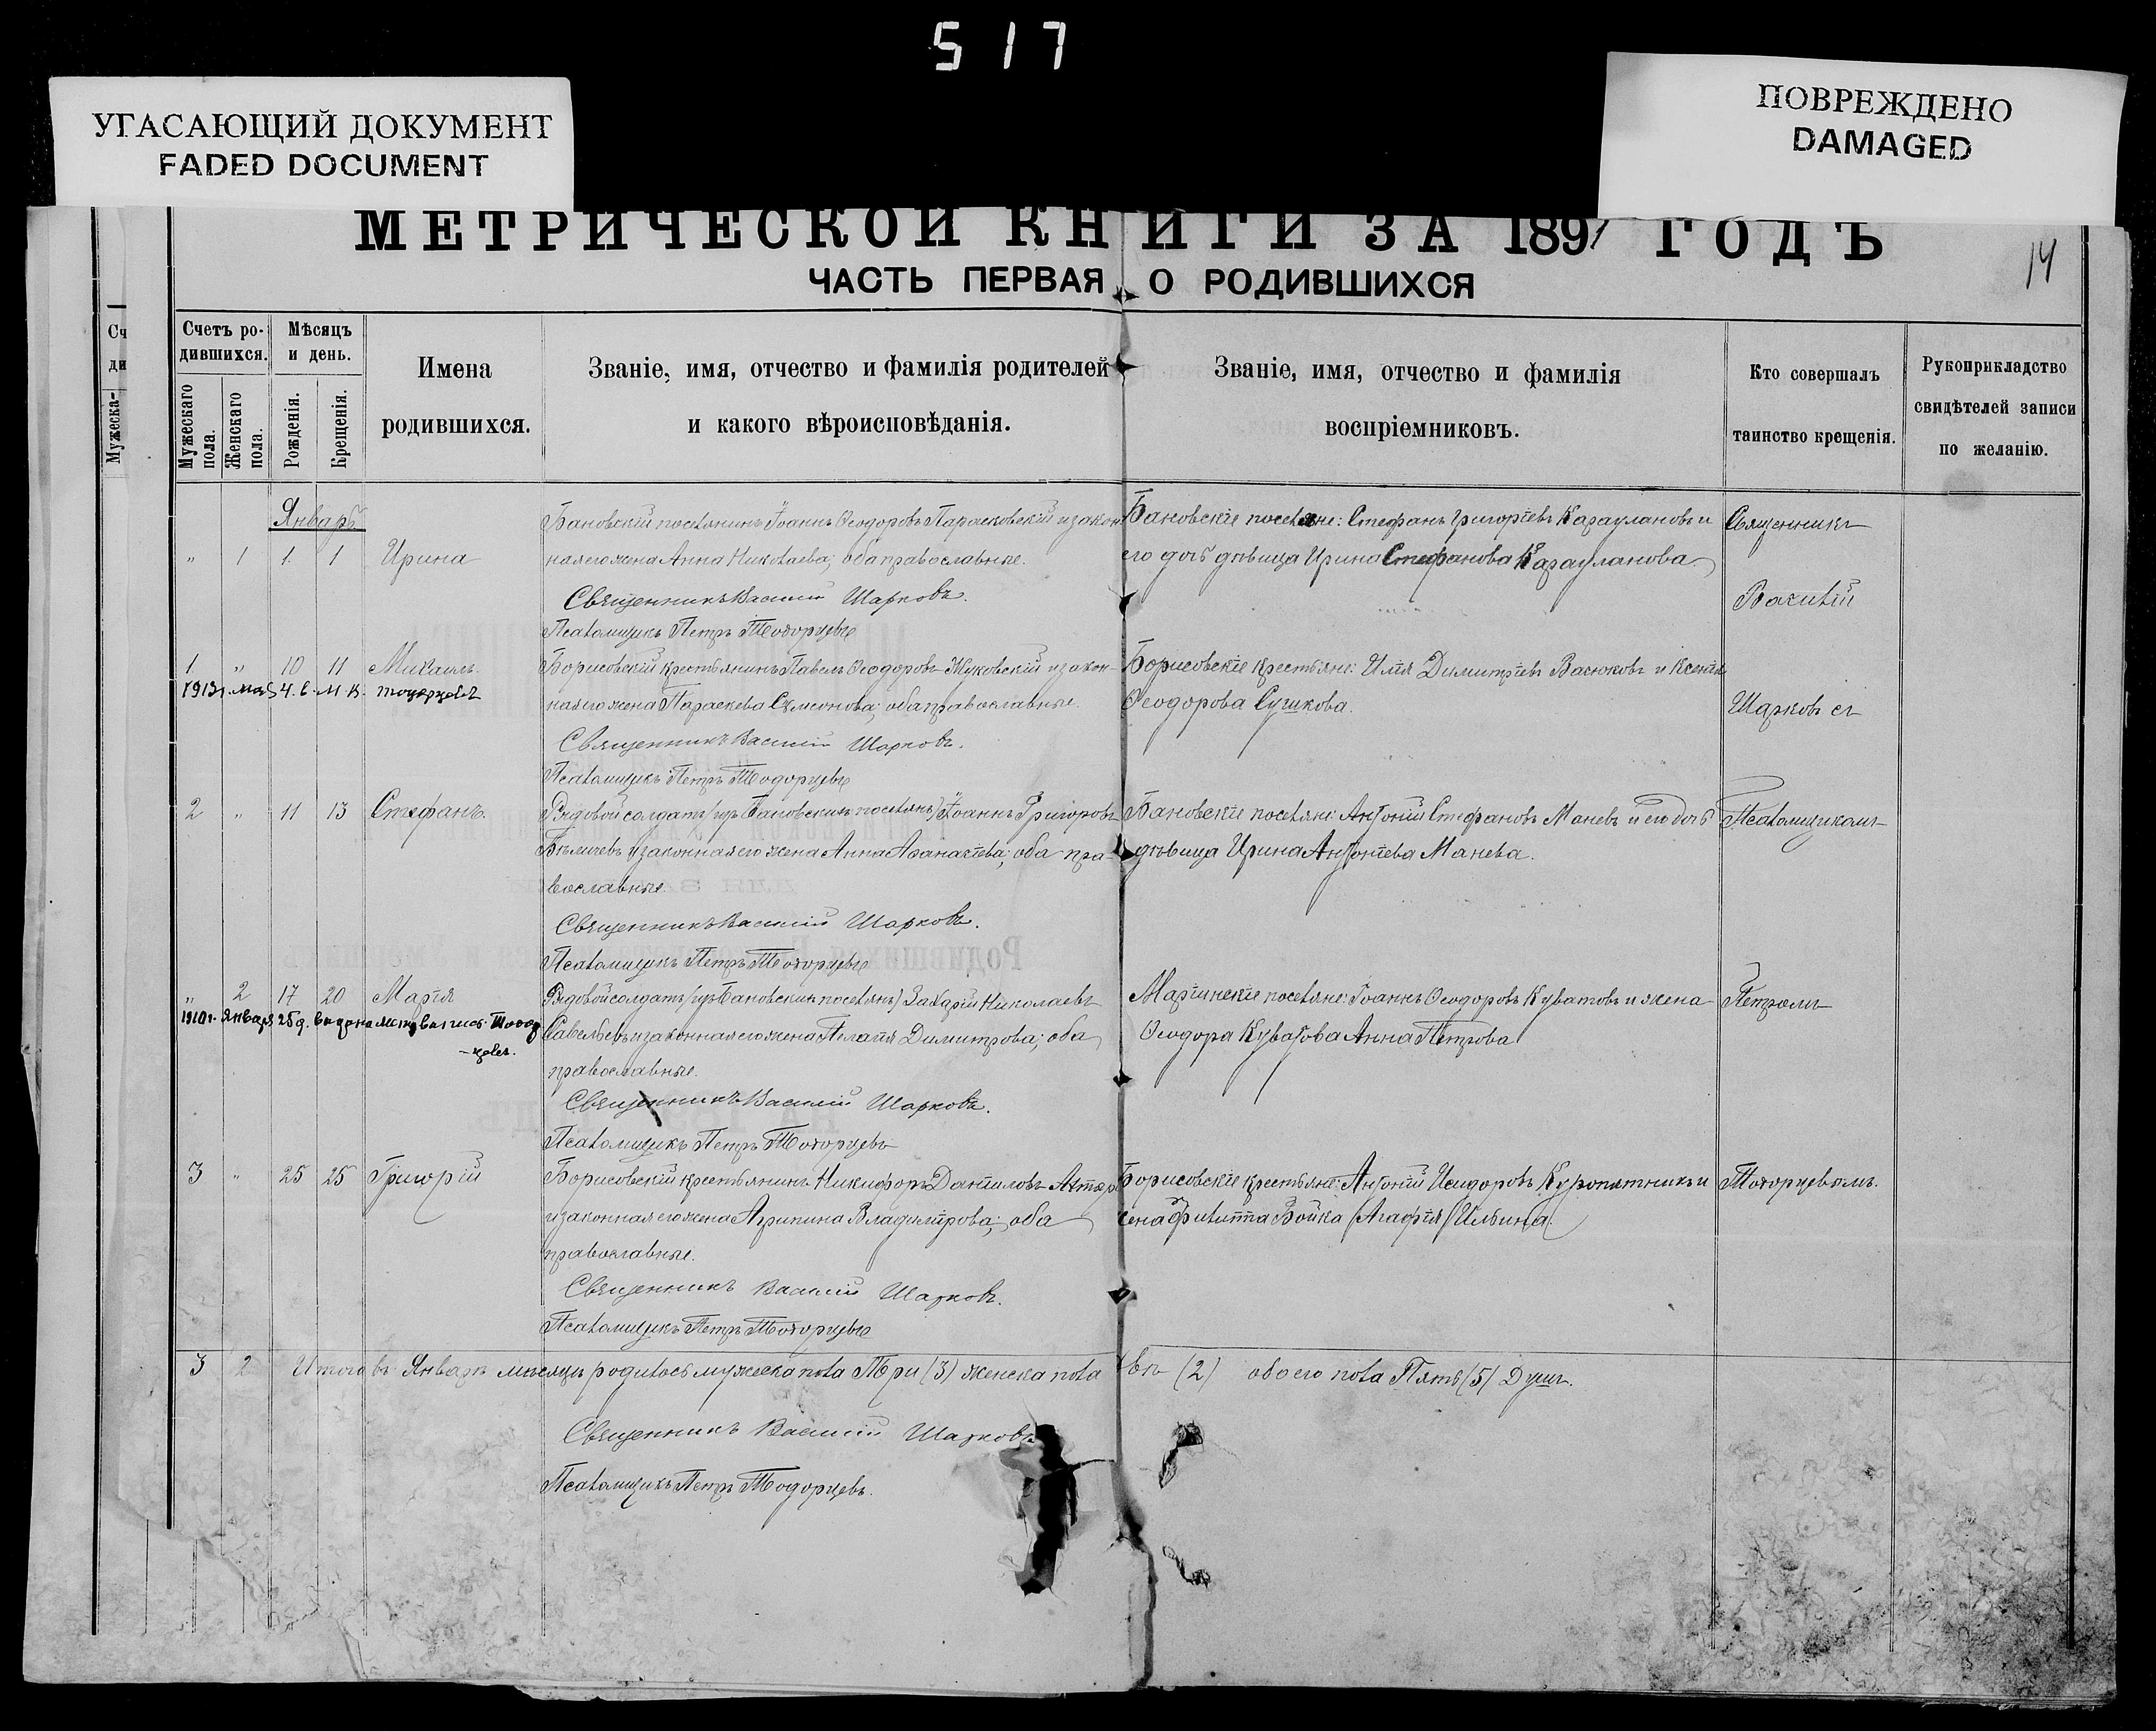 517
УГАСАЮЩИЙ ДОКУМЕНТ
FADED DOCUMENT
ПОВРЕЖДЕНО
DAMAGED
МЕТРИЧЕСКОЙ КНИГИ ЗА 1897 ГОДЪ
14
ЧАСТЬ ПЕРВАЯ О РОДИВШИХСЯ
Сч
ди
Мужеска-
Счетъ ро-
дившихся.
Мужескаго пола.
Женскаго пола.
Мѣсяцъ
и день.
Рожденія.
Крещенія.
Имена
родившихся.
Званіе, имя, отчество и фамилія родителей
и какого вѣроисповѣданія.
Званіе, имя, отчество и фамилія
воспріемниковъ.
Кто совершалъ
таинство крещенія.
Рукоприкладство
свидѣтелей записи
по желанію.
Январь
" 1 1 1 Ирина
Бановскій поселянинъ Іоаннъ Ѳеодоровъ Парасковскій и закон
ная его жена Анна Николаева; оба православные.
Священникъ Василій Шарковъ.
Псаломщикъ Петръ Тодорцевъ
Бановскіе поселяне: Стефанъ Григоріевъ Караулановъ и
его дочь дѣвица Ирина Стефанова Карауланова
Священникъ
Василій
1 " 10 11 Михаилъ.
1913 г. мая 4. в. М К. Тодорцевъ
Борисовскій крестьянинъ Павелъ Ѳеодоровъ Жуковскій и закон-
ная его жена Параскева Симеонова; оба православные.
Священникъ Василій Шарковъ.
Псаломщикъ Петръ Тодорцевъ
Борисовскіе крестьяне: Илія Димитріевъ Васюковъ и Ксенія
Ѳеодорова Сушкова.
Шарковъ съ
2 " 11 13 Стефанъ.
Рядовой солдатъ (изъ Бановскихъ поселянъ) Іоаннъ Григоровъ
и законная его жена Анна Аѳанасіева; оба пра-
вославные.
Священникъ Василій Шарковъ.
Псаломщикъ Петръ Тодорцевъ
Бановскіе поселяне: Антоній Стефановъ Маневъ и его дочь
дѣвица Ирина Антоніева Манева.
Псаломщикомъ
" 2 17 20 Марія
1910 г. Января 25 д. выдана
Рядовой солдатъ (изъ Бановскихъ поселянъ) Захарій Николаевъ
Савельевъ и законная его жена Пелагія Димитрова; оба
православные.
Священникъ Василій Шарковъ.
Псаломщикъ Петръ Тодорцевъ
Маріинскіе поселяне: Іоаннъ Ѳеодоровъ Куватовъ и жена
Ѳеодора Куватова Анна Петрова
Петромъ
3 " 25 25 Григорій
Борисовскій крестьянинъ Никифоръ Даниловъ
и законная его жена Агрипина Владимірова; оба
православные.
Священникъ Василій Шарковъ.
Псаломщикъ Петръ Тодорцевъ
Борисовскіе крестьяне: Антоній Исидоровъ Куропятникъ и
жена Филиппа Бойка (Агафія) Ильина.
Тодорцевымъ.
3 2 Итого въ Январѣ мѣсяцѣ родилось мужеска пола Три (3) женска пола двѣ (2) обоего пола Пять (5) Душъ.
Священникъ Василій Шарковъ
Псаломщикъ Петръ Тодорцевъ.